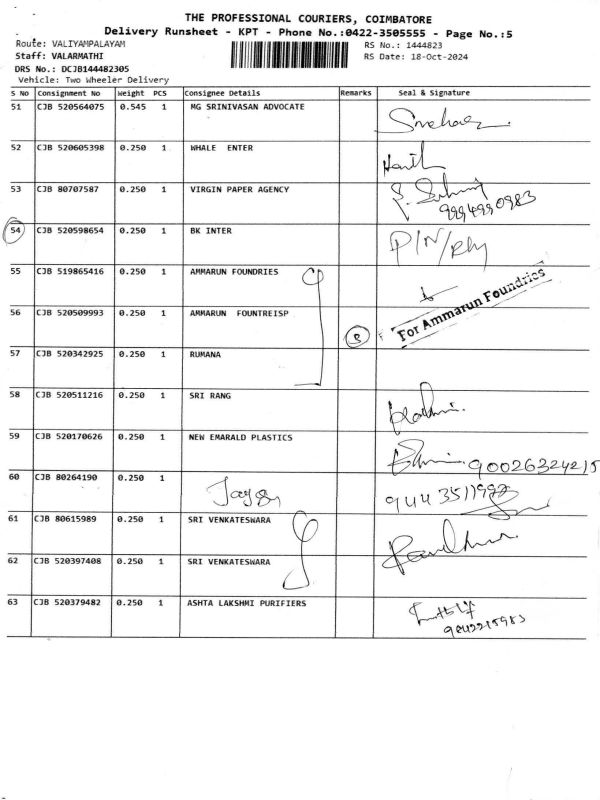 THE PROFESSIONAL COURIERS, COIMBATORE
Delivery Runsheet - KPT - Phone No.:0422-3505555 - Page No.:5
Route: VALIYAMPALAYAM RS No.: 1444823
Staff: VALARMATHI RS Date: 18-Oct-2024
DRS No.: DCJB144482305
Vehicle: Two Wheeler Delivery
S No Consignment No Weight PCS Consignee Details Remarks Seal & Signature
51 CJB 520564075 0.545 1 MG SRINIVASAN ADVOCATE
52 CJB 520605398 0.250 1 WHALE ENTER
53 CJB 80707587 0.250 1 VIRGIN PAPER AGENCY
9994990983
54 CJB 520598654 0.250 1 BK INTER
55 CJB 519865416 0.250 1 AMMARUN FOUNDRIES
For Ammarun Foundries
56 CJB 520509993 0.250 1 AMMARUN FOUNTREISP
57 CJB 520342925 0.250 1 RUMANA
58 CJB 520511216 0.250 1 SRI RANG
59 CJB 520170626 0.250 1 NEW EMARALD PLASTICS
90026324215
60 CJB 80264190 0.250 1
61 CJB 80615989 0.250 1 SRI VENKATESWARA
62 CJB 520397408 0.250 1 SRI VENKATESWARA
63 CJB 520379482 0.250 1 ASHTA LAKSHMI PURIFIERS